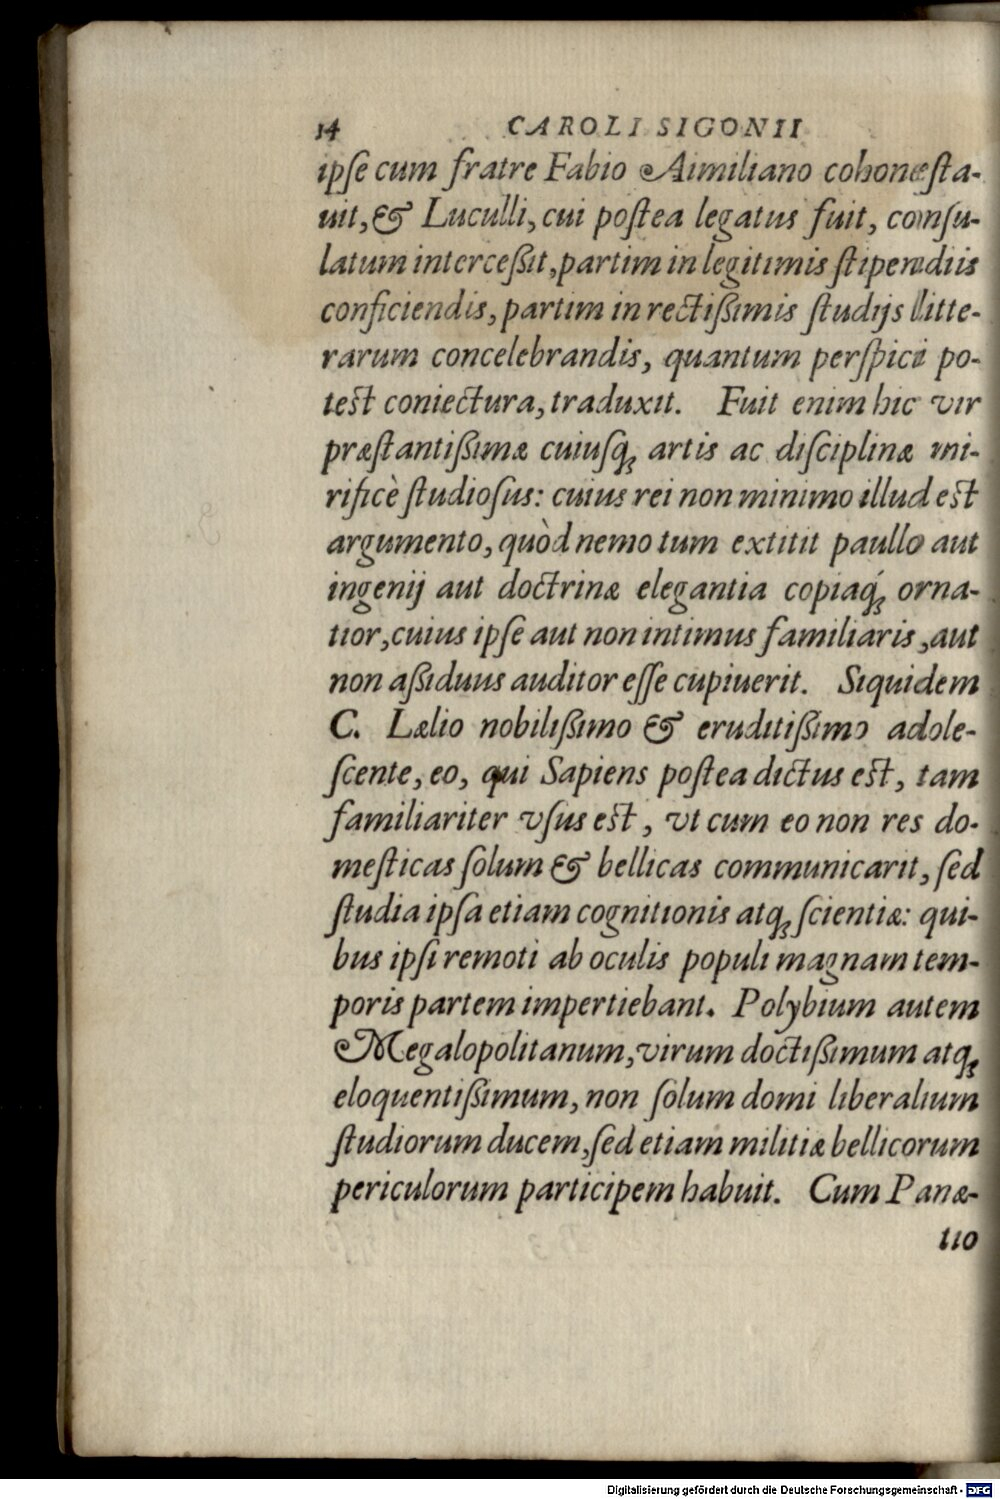 14 CAROLI SIGONII
ipſe cum fratre Fabio Aimiliano cohoneſta-
uit, & Luculli, cui poſtea legatus fuit, conſu-
latum interceßit, partim in legitimis ſtipendiis
conficiendis, partim in rectißimis ſtudijs litte-
rarum concelebrandis, quantum perſpici po-
test coniectura, traduxit. Fuit enim hic vir
præſtantißimæ cuiuſq; artis ac diſciplinæ mi-
rificè ſtudioſus: cuius rei non minimo illud est
argumento, quòd nemo tum extitit paullo aut
ingenij aut doctrinæ elegantia copiaq́; orna-
tior, cuius ipſe aut non intimus familiaris, aut
non aßiduus auditor eſſe cupiuerit. Siquidem
C. Lælio nobilißimo & eruditißimo adole-
ſcente, eo, qui Sapiens poſtea dictus est, tam
familiariter vſus est, vt cum eo non res do-
meſticas ſolum & bellicas communicarit, ſed
ſtudia ipſa etiam cognitionis atq; ſcientiæ: qui-
bus ipſi remoti ab oculis populi magnam tem-
poris partem impertiebant. Polybium autem
Megalopolitanum, virum doctißimum atq;
eloquentißimum, non ſolum domi liberalium
ſtudiorum ducem, ſed etiam militiæ bellicorum
periculorum participem habuit. Cum Panæ-
tio
Digitalisierung gefördert durch die Deutsche Forschungsgemeinschaft - DFG